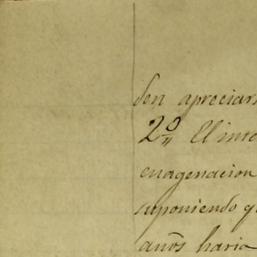 den apreciar
2º El inte
enagenacion
suponiendo q
años haria